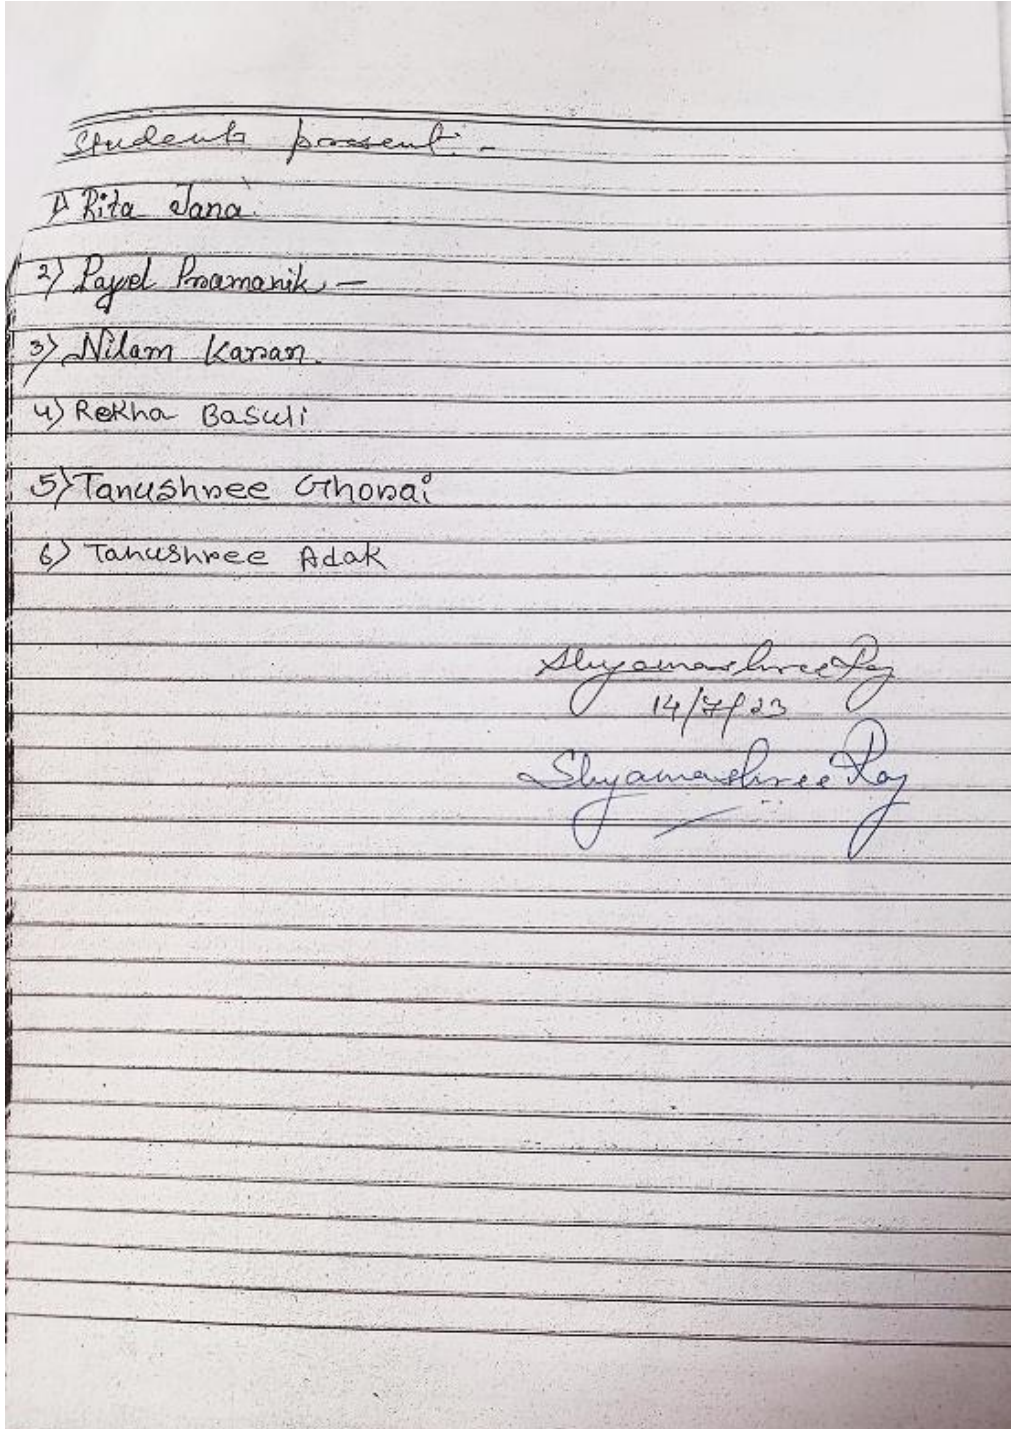 Students present: -
1) Rita Jana.
2) Payel Pramanik -
3) Nilam Karan.
4) Rekha Basuli
5) Tanushree Ghorai
6) Tanushree Adak
Shyamashree Roy
14/7/23
Shyamashree Roy